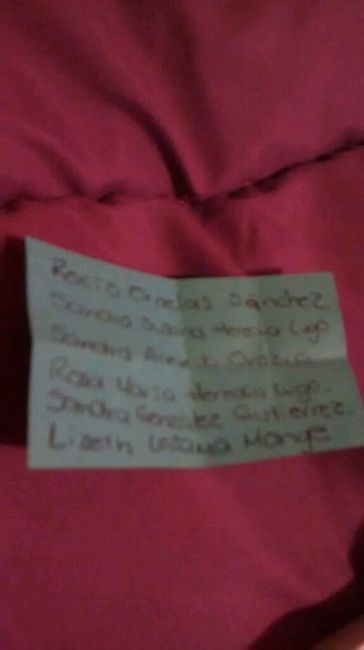 Rocio Ornelas Sánchez
Sandra Susana Heredia Lugo
Sandra Acevedo Orozco
Rosa Maria Heredia Lugo.
Sandra Gonzalez Gutierrez.
Lizeth Lezama Monge